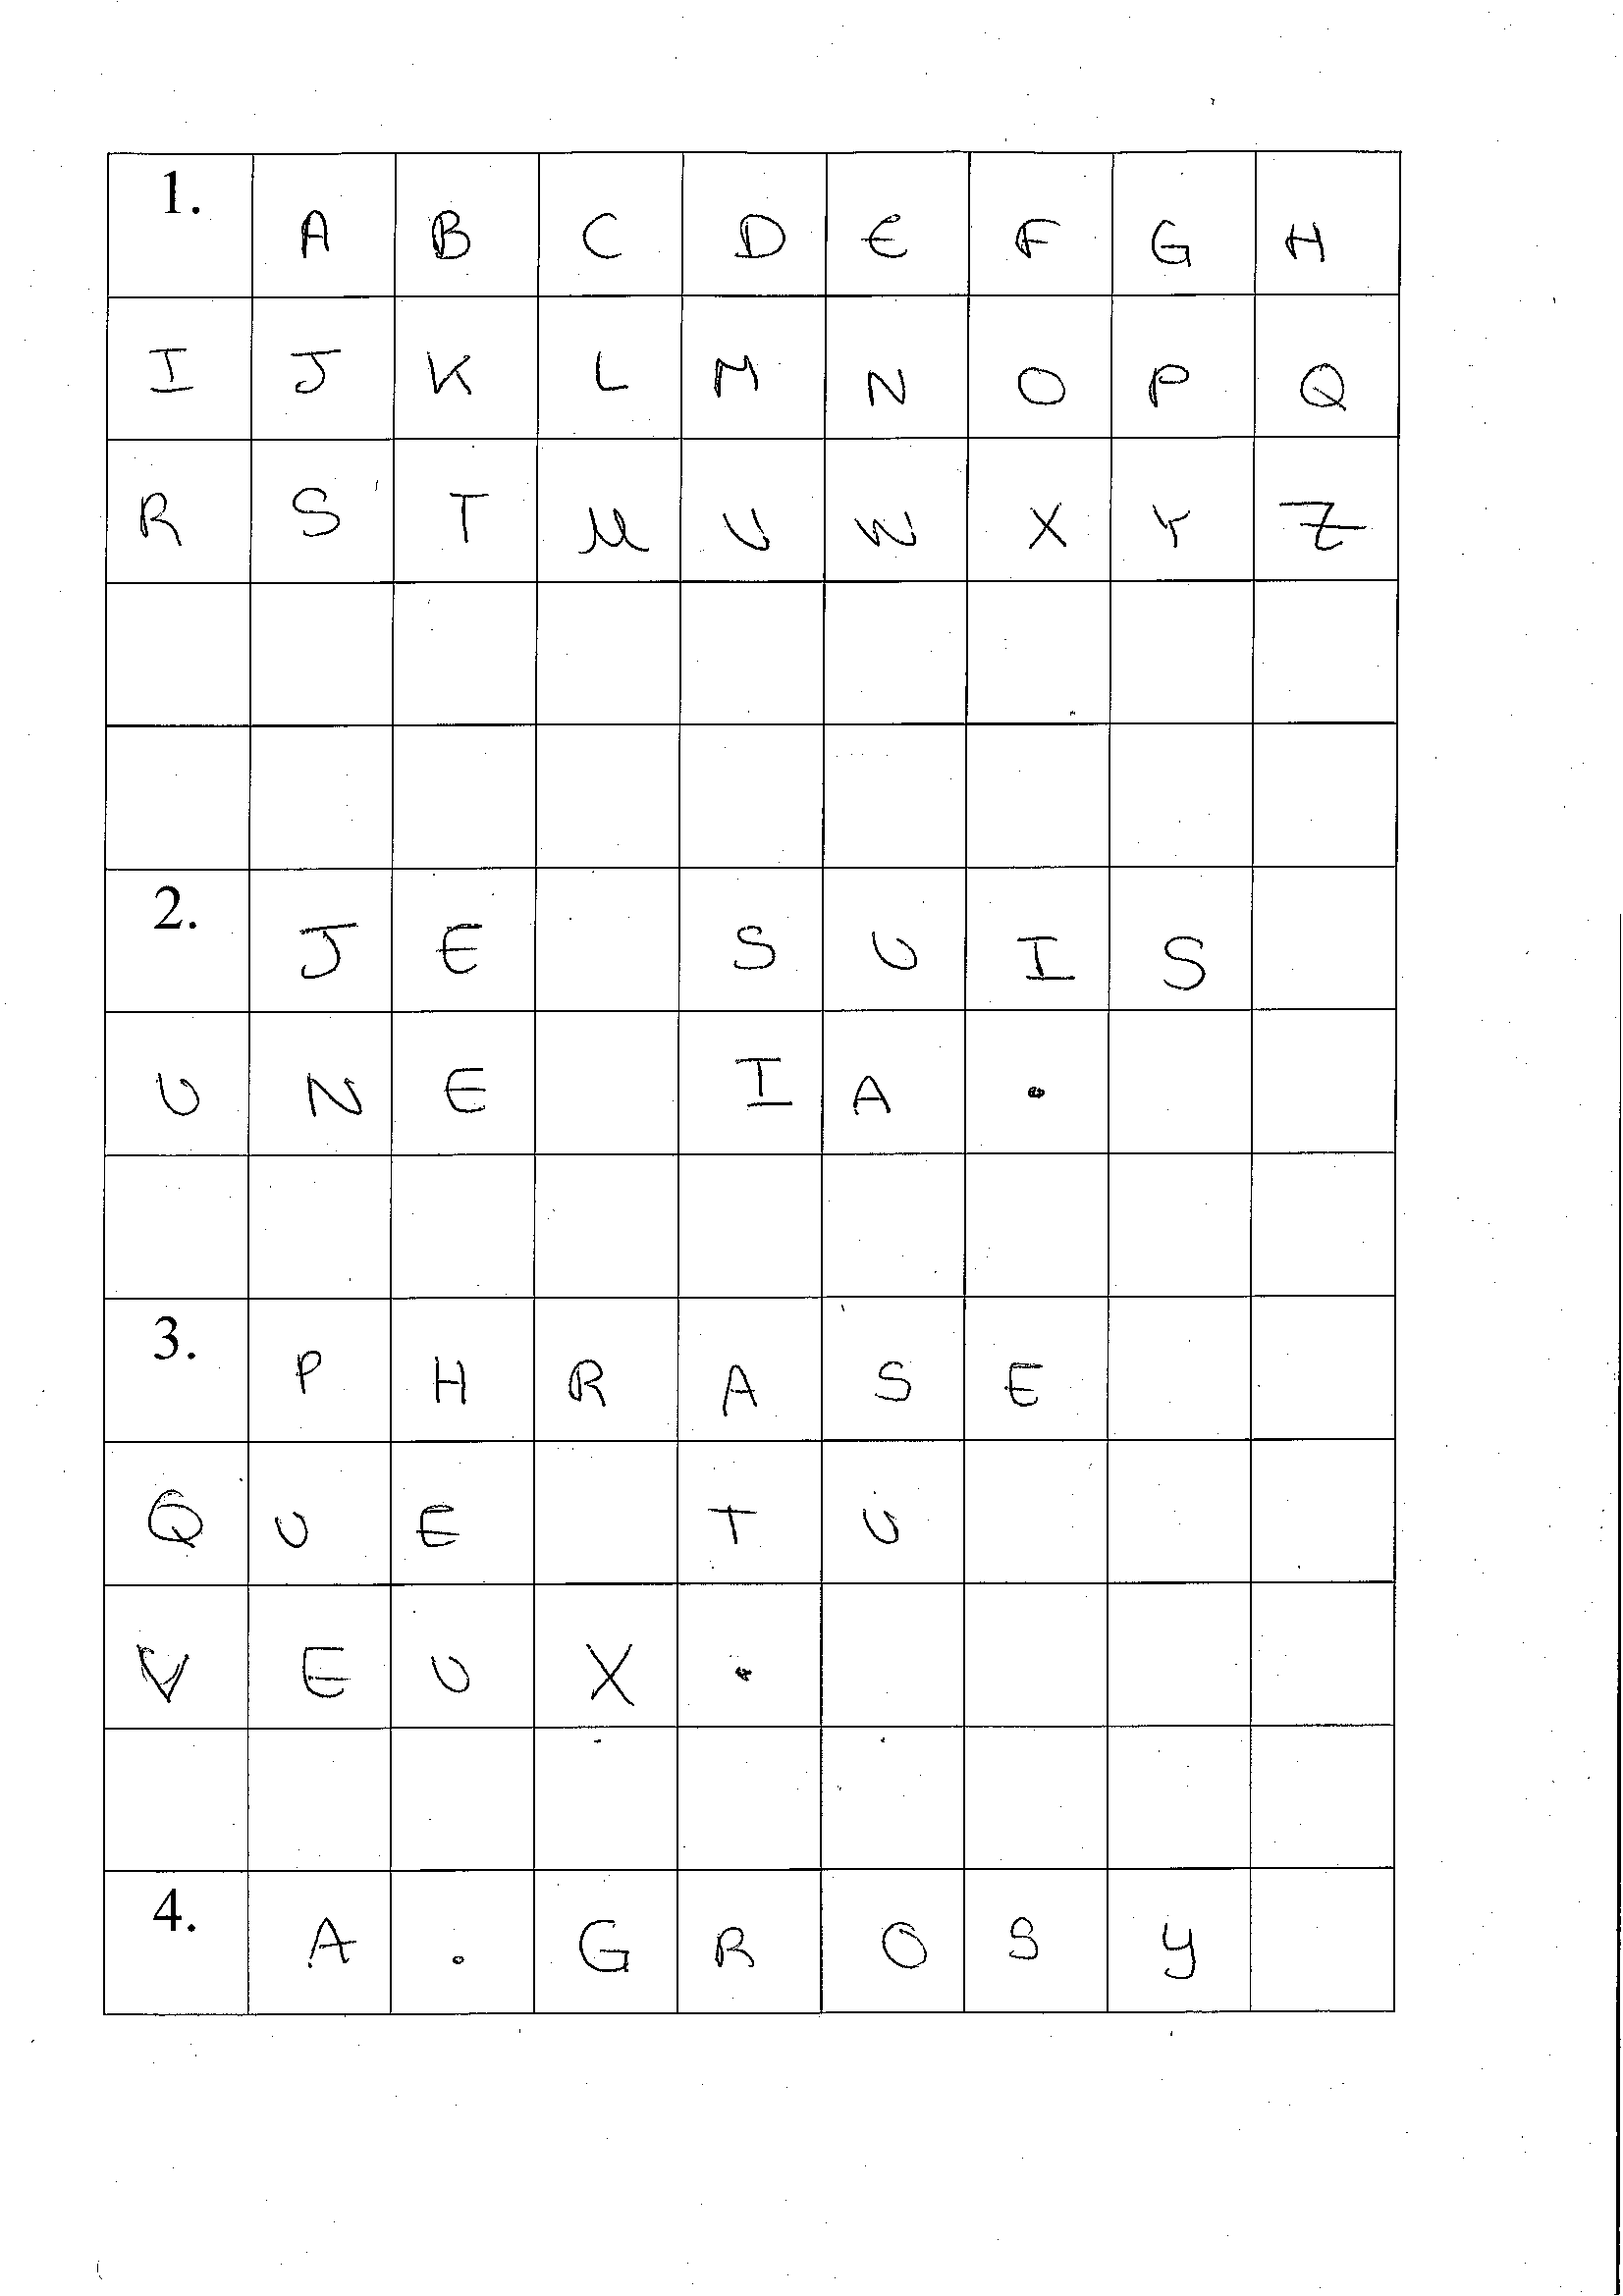 1. A B C D E F G H
I J K L M N O P Q
R S T U V W X Y Z
2. J E   S U I S
U N E   I A .
3. P H R A S E
Q U E   T U
V E U X .
4. A . G R O S Y